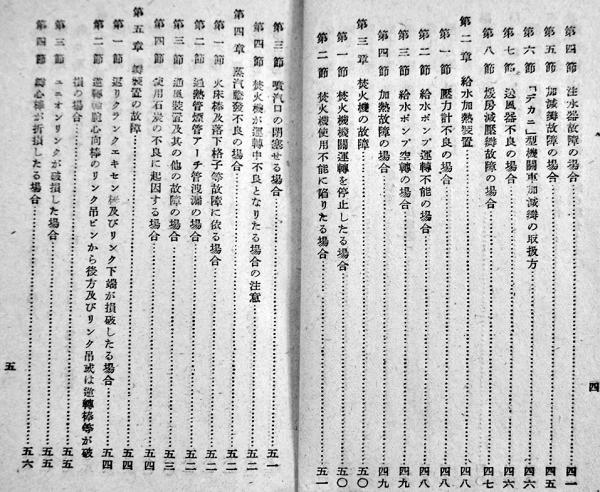 第四節 注水器故障の場合…………四一
第五節 加減瓣故障の場合…………四五
第六節 「デカニ」型機關車加減瓣の取扱方…………四六
第七節 送風器不良の場合…………四六
第八節 煖房減壓瓣故障の場合…………四七
第二章 給水加熱裝置…………四八
第一節 壓力計不良の場合…………四八
第二節 給水ポンプ運轉不能の場合…………四八
第三節 給水ポンプ空轉の場合…………四九
第四節 加熱故障の場合…………四九
第三章 焚火機の故障…………五〇
第一節 焚火機機關運轉を停止したる場合…………五〇
第二節 焚火機使用不能に陷りたる場合…………五一
四
第三節 噴汽口の閉塞せる場合…………五一
第四節 焚火機が運轉中不良となりたる場合の注意…………五二
第四章 蒸汽騰發不良の場合…………五二
第一節 火床棒及落下格子等故障に依る場合…………五二
第二節 過熱管煙管アーチ管洩漏の場合…………五二
第三節 通風裝置及其の他の故障の場合…………五三
第四節 使用石炭の不良に起因する場合…………五四
第五章 瓣裝置の故障…………五四
第一節 返りクランクエキセン棒及びリンク下端が損破したる場合…………五四
第二節 逆轉軸腕心向棒のリンク吊ピンから後方及びリンク吊或は逆轉棒等が破
損の場合…………五五
第三節 ユニオンリンクが破損した場合…………五五
第四節 瓣心棒が折損したる場合…………五六
五